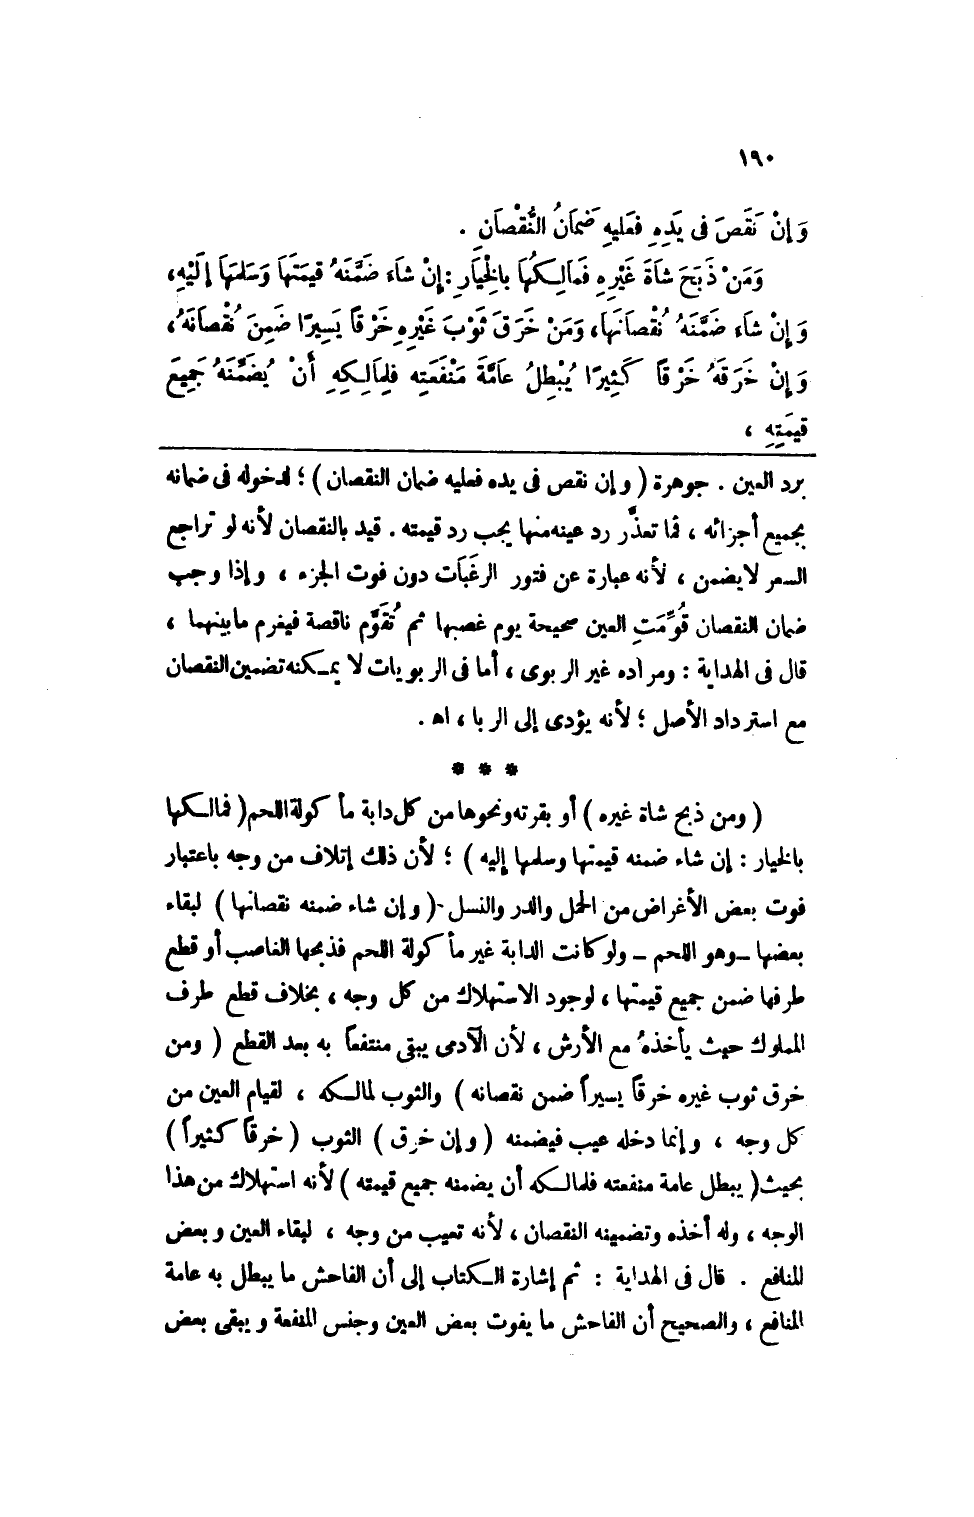 ١٩٠
وَإِنْ نَقَصَ فى يَدِهِ فعَليهِ ضَمَانُ النُّقْصَان .
وَمَنْ ذَبَحَ شاَةَ غَيْرِهِ فَمَالِكُهَا بالْخِيَارِ : إنْ شاَء ضَمَّنَهُ قيمَتَهَا وَسَلمَهَا إلَيْهِ،
وَإنْ شاَء ضَمَّنَهُ نُقْصاَنَهَا، وَمَنْ خَرَقَ ثوْبَ غَيْرِهِ خَرْقاً يَسِيرًا ضَمِنَ نُقْصاَنَهُ،
وَإنْ خَرَقَهُ خَرْقاً كَثِيرًا يُبْطِلُ عاَمَّةَ مَنْفَعَتِه فلِمَالِكِهِ أَنْ يُضَمِّنَهُ جَمِيعَ
قيمَتِهِ ،
برد العين . جوهرة ( وإن نقص فى يده فعليه ضمان النقصان ) ؛ لدخوله فى ضمانه
بجميع أجزائه ، فما تعذَّر رد عينه منها يجب رد قيمته . قيد بالنقصان لأنه لو تراجع
السعر لا يضمن ، لأنه عبارة عن فتور الرغَبَات دون فوت الجزء ، وإذا وجب
ضمان النقصان قُوِّمَتِ العين صحيحة يوم غصبها ثم تُقَوَّم ناقصة فيغرم ما بينهما ،
قال فى الهداية : ومراده غير الربوى ، أما فى الربويات لا يمكنه تضمين النقصان
مع استرداد الأصل ؛ لأنه يؤدى إلى الربا ، اه .
* * *
( ومن ذبح شاة غيره ) أو بقرته ونحوها من كل دابة مأكولة اللحم ( فمالكها
بالخيار : إن شاء ضمنه قيمتها وسلمها إليه ) ؛ لأن ذلك إتلاف من وجه باعتبار
فوت بعض الأغراض من الحمل والدر والنسل ( وإن شاء ضمنه نقصانها ) لبقاء
بعضها – وهو اللحم – ولو كانت الدابة غير مأكولة اللحم فذبحها الغاصب أو قطع
طرفها ضمن جميع قيمتها ، لوجود الاستهلاك من كل وجه ، بخلاف قطع طرف
المملوك حيث يأخذهُ مع الأرش ، لأن الآدمى يبقى منتفعاً به بعد القطع ( ومن
خرق ثوب غيره خرقاً يسيراً ضمن نقصانه ) والثوب لمالكه ، لقيام العين من
كل وجه ، وإنما دخله عيب فيضمنه ( وإن خرق ) الثوب ( خرقاً كثيراً )
بحيث ( يبطل عامة منفعته فلمالكه أن يضمنه جميع قيمته ) لأنه استهلاك من هذا
الوجه ، وله أخذه وتضمينه النقصان ، لأنه تعيب من وجه ، لبقاء العين وبعض
المنافع . قال فى الهداية : ثم إشارة الكتاب إلى أن الفاحش ما يبطل به عامة
المنافع ، والصحيح أن الفاحش ما يفوت بعض العين وجنس المنفعة ويبقى بعض